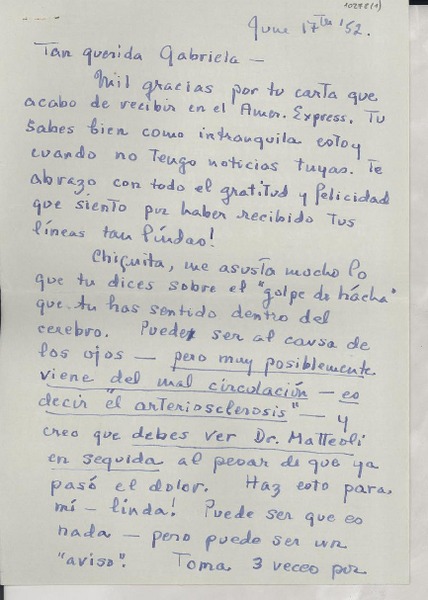 10278(1)
June 17th '52.
Tan querida Gabriela —
Mil gracias por tu carta que
acabo de recibir en el Amer. Express. Tu
sabes bien como intranquila estoy
cuando no tengo noticias tuyas. Te
abrazo con todo el gratitud y felicidad
que siento por haber recibido tus
líneas tan lindas!
Chiquita, me asusta mucho lo
que tu dices sobre el "golpe de hácha"
que tu has sentido dentro del
cerebro. Puede ser al causa de
los ojos — pero muy posiblemente
viene del mal circulación — es
decir "el arteriosclerosis" — y
creo que debes ver Dr. Matteoli
en seguida al pesar de que ya
pasó el dolor. Haz esto para
mí — linda! Puede ser que es
nada — pero puede ser un
"aviso". Toma 3 veces por